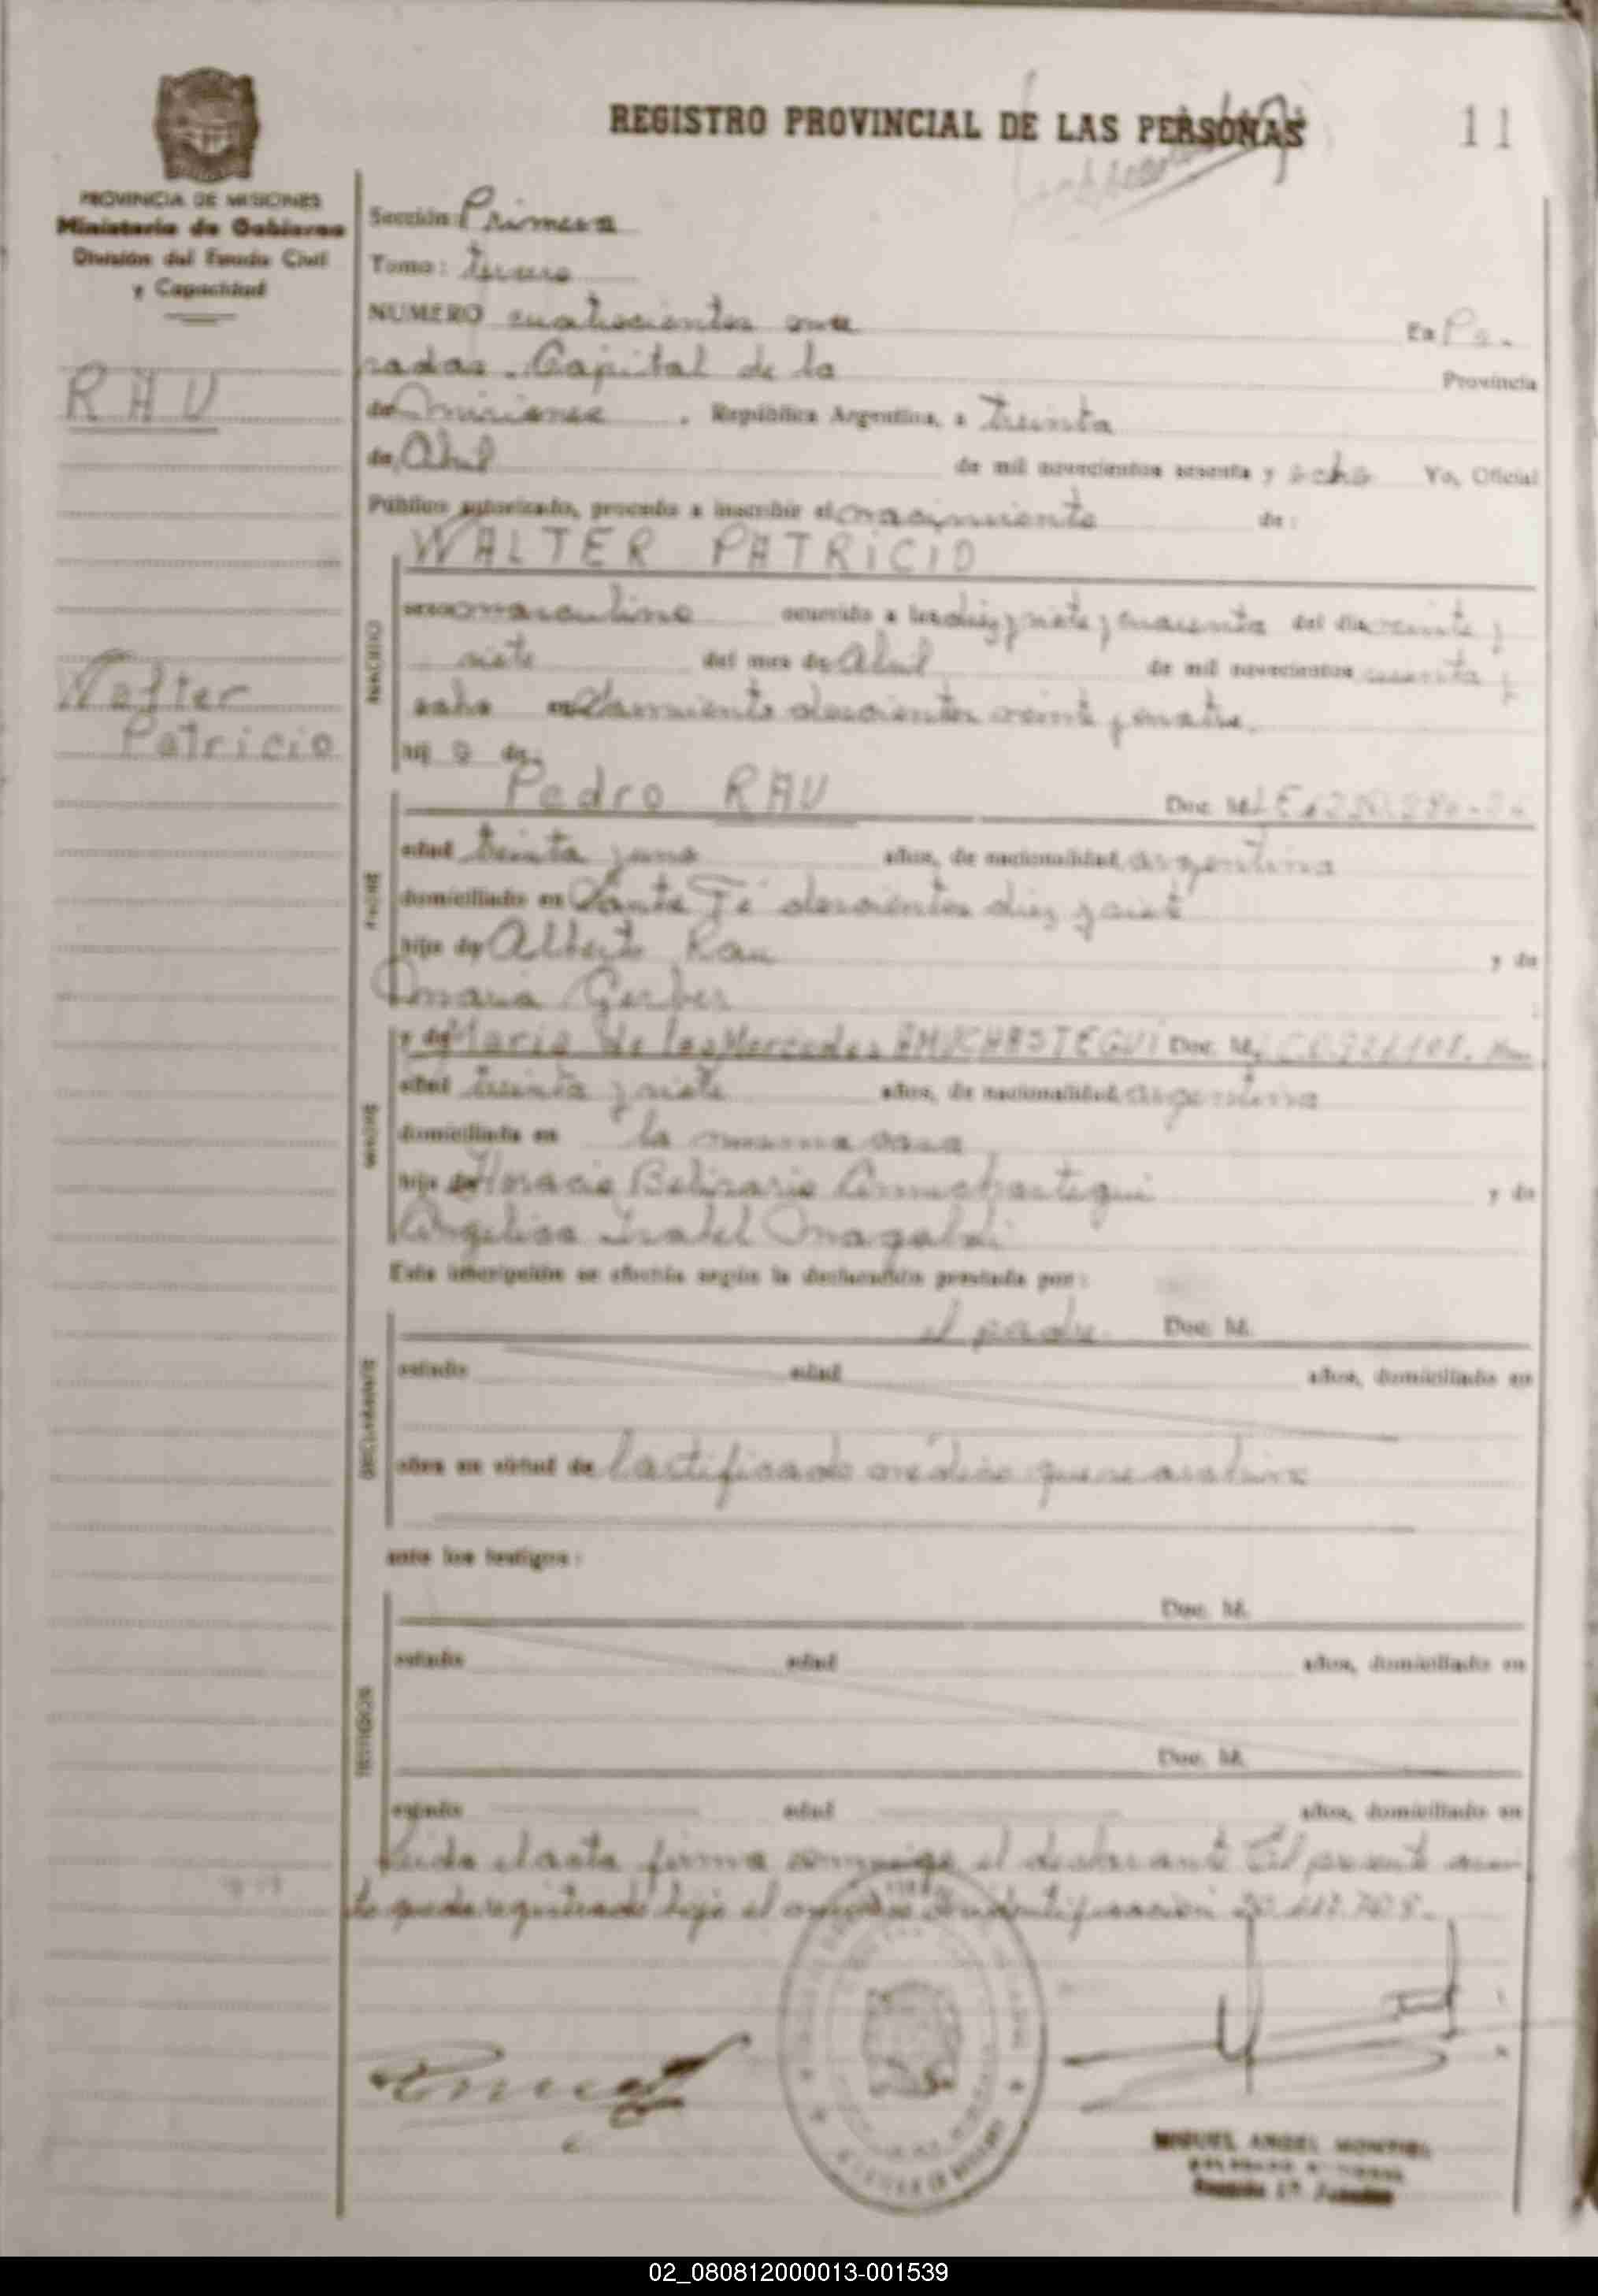 REGISTRO PROVINCIAL DE LAS PERSONAS
11
PROVINCIA DE MISIONES
Ministerio de Gobierno
División del Estado Civil
y Capacidad
Sección: Primera
Tomo: tercero
NUMERO cuatrocientos once En Po.
sadas. Capital de la Provincia
de Misiones. República Argentina, a Treinta
de Abril de mil novecientos sesenta y ocho Yo, Oficial
Público autorizado, procedo a inscribir el nacimiento de:
RAU
Walter
Patricio
NACIDO
WALTER PATRICIO
sexo masculino ocurrido a las diez y siete y cuarenta del día veinte y
siete del mes de Abril de mil novecientos sesenta y
ocho en Sarmiento doscientos veinte y cuatro.
hij o de:
PADRE
Pedro RAU Doc. M. L E
edad treinta y uno años, de nacionalidad argentina
domiciliado en Santa Fé doscientos diez y siete
hijo de Alberto Rau y de
Maria Gerber
MADRE
y de Maria de las Mercedes AMUCHASTEGUI Doc. M.
edad treinta y siete años, de nacionalidad argentina
domiciliada en la misma casa
hija de Horacio Belisario Amuchastegui y de
Angelica Isabel Magaldi
Esta inscripción se efectúa según la declaración prestada por:
DECLARANTE
el padre Doc. M.
estado edad años, domiciliado en
obra en virtud de certificado médico que se archiva
ante los testigos:
TESTIGOS
Doc. M.
estado edad años, domiciliado en
Doc. M.
estado edad años, domiciliado en
Leida el acta firma conmigo el declarante El presente asien
to queda registrado bajo el numero de identificación
MIGUEL ANGEL MONTIEL
02_080812000013-001539